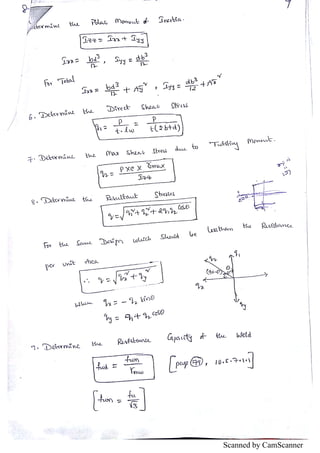 5. Determine the Polar Moment of Inertia.
Izz = Ixx + Iyy
Ixx = bd³/12 , Iyy = db³/12
For Total
Ixx = bd³/12 + Ay² , Iyy = db³/12 + Ax²
6. Determine the Direct Shear Stress
q1 = P/(t·lw) = P/(t(2b+d))
7. Determine the Max Shear Stress due to Twisting Moment.
q2 = P×e×rmax/Izz
8. Determine the Resultant Stresses
q = √(q1² + q2² + 2q1q2 cosθ)
For the Same Design which Should be lessthan the Resistance
per unit Area
∴ q = √(qx² + qy²)
When qx = - q2 sinθ
qy = q1 + q2 cosθ
9. Determine the Resistance Capacity of the Weld
fwd = fwn/γmw [page 79, 10.5.7.1.1]
[fwn = fu/√3]
Scanned by CamScanner